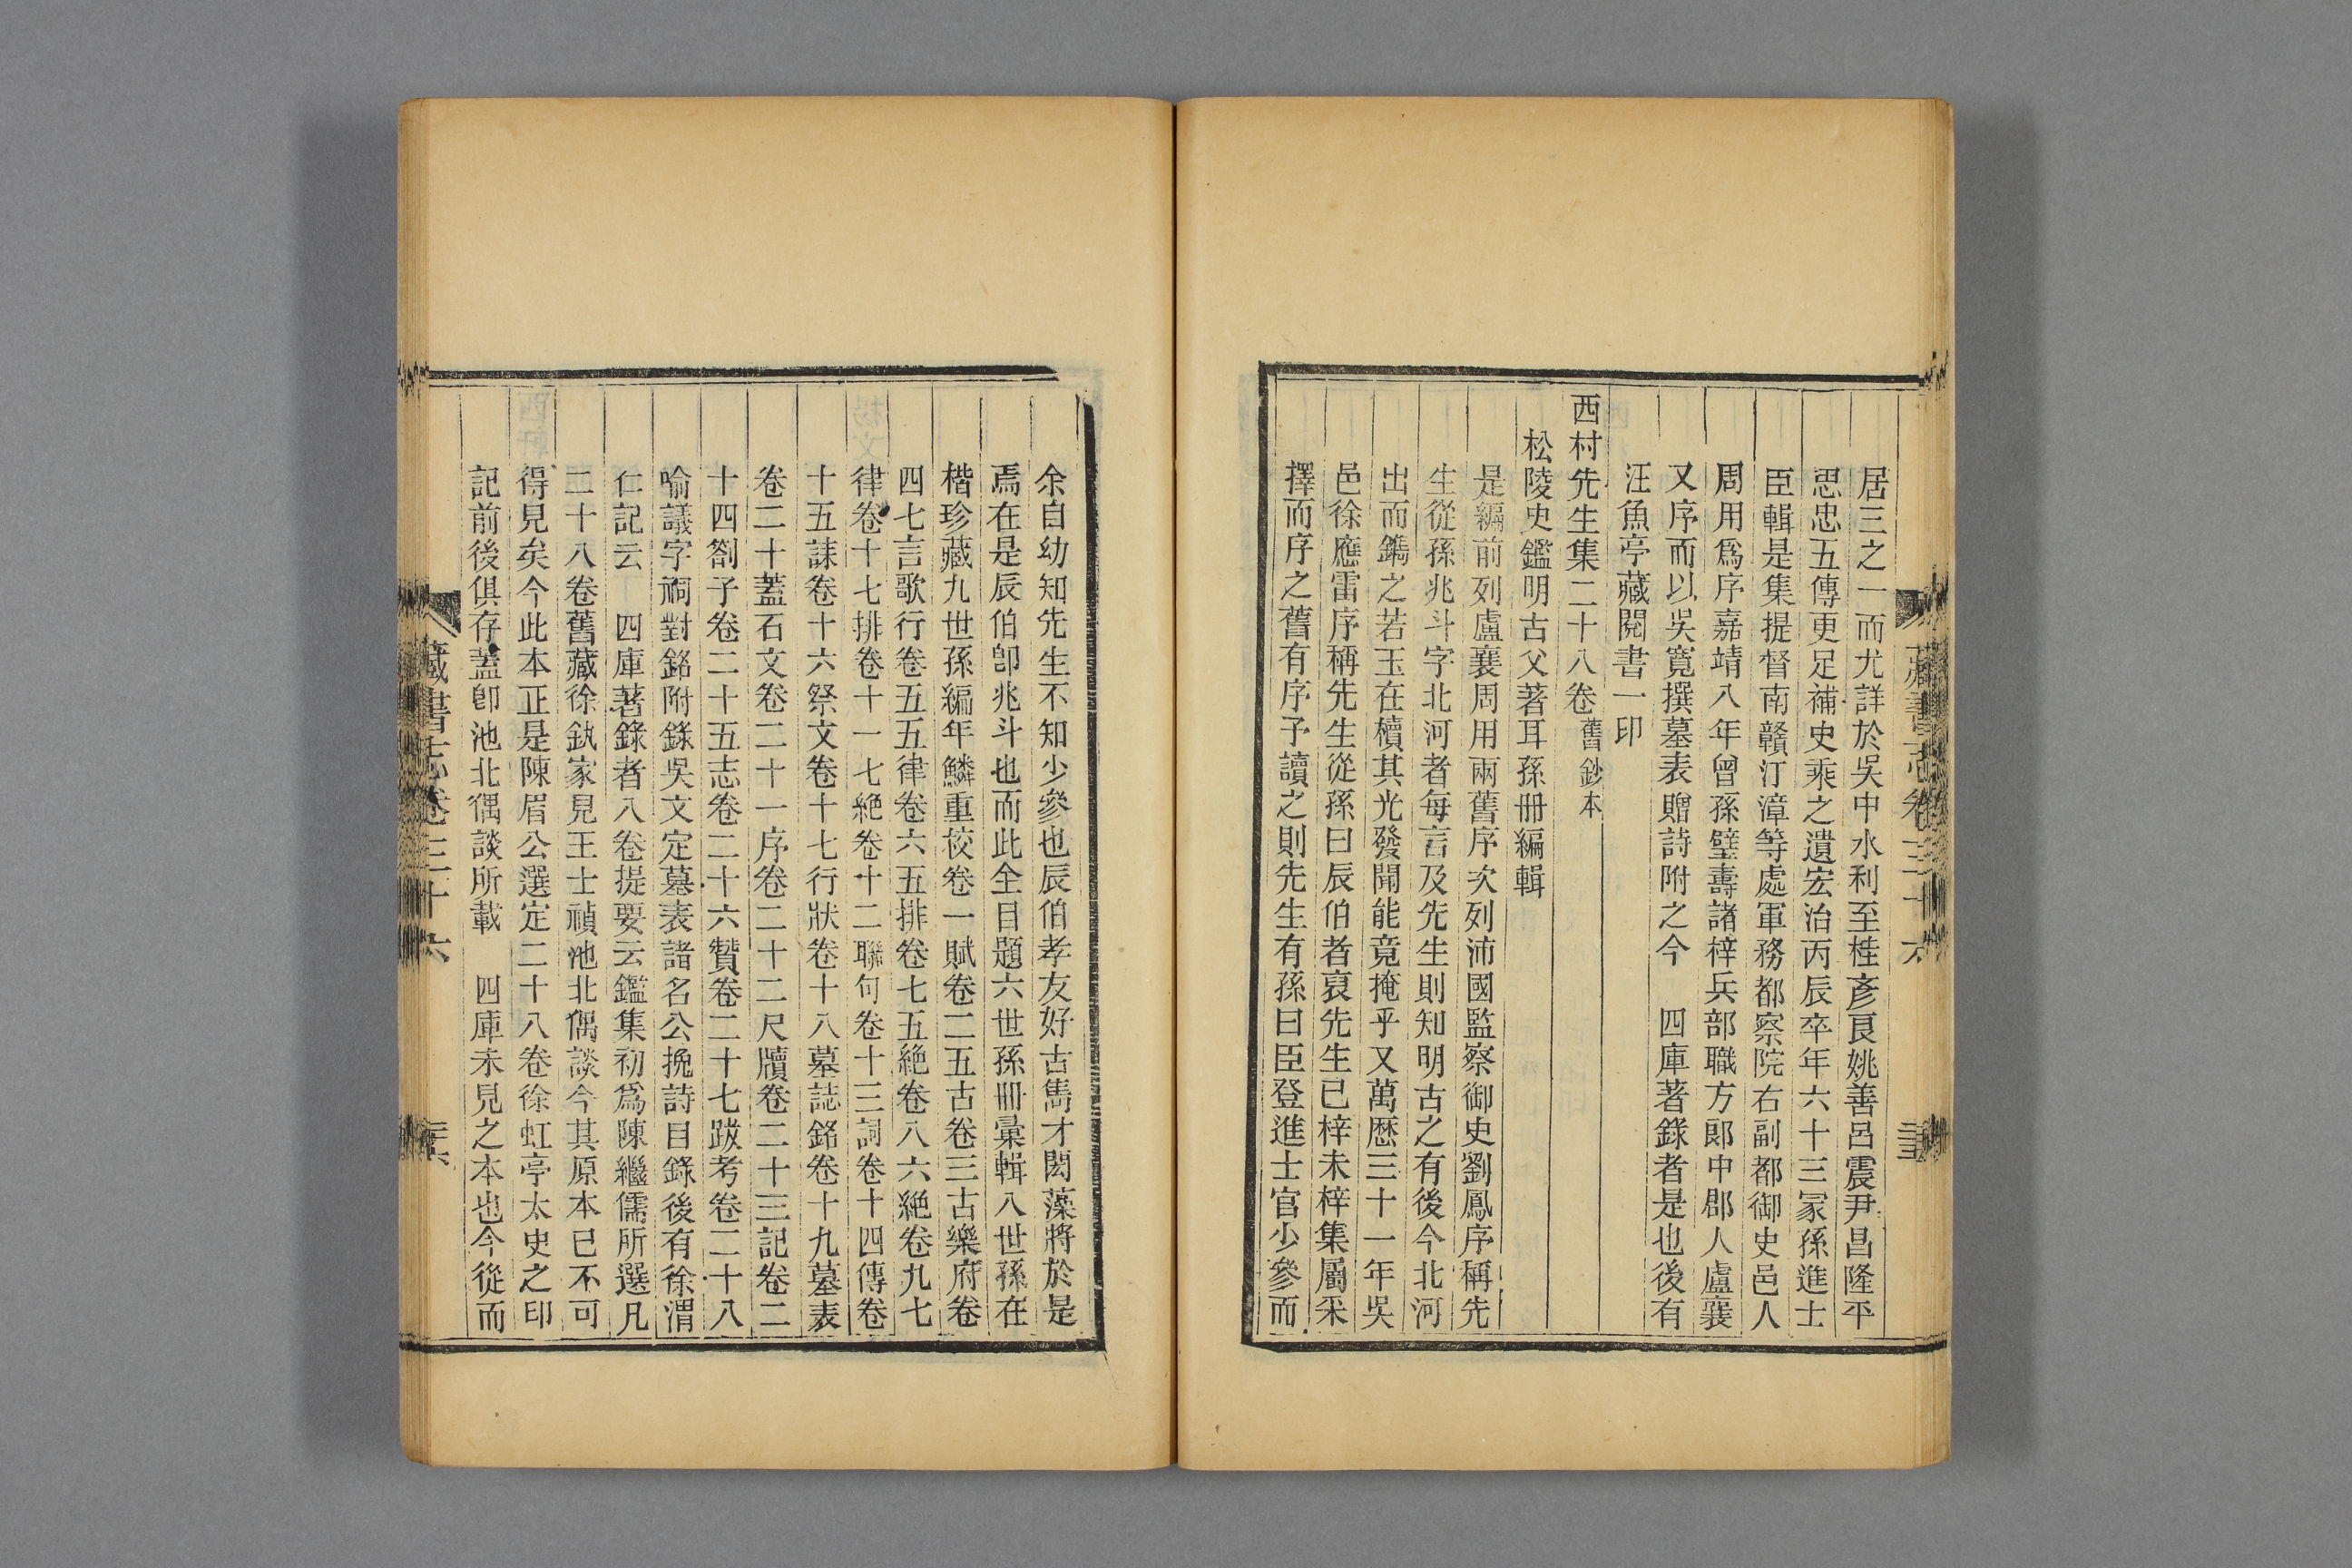 居三之一而尤詳於吳中水利至桂彥良姚善呂震尹昌隆平
思忠五傳更足補史乘之遺宏治丙辰卒年六十三冢孫進士
臣輯是集提督南贛汀漳等處軍務都察院右副都御史邑人
周用爲序嘉靖八年曾孫璧壽諸梓兵部職方郎中郡人盧襄
又序而以吳寬撰墓表贈詩附之今　四庫著錄者是也後有
汪魚亭藏閱書一印
西村先生集二十八卷舊鈔本
松陵史鑑明古父著耳孫冊編輯
是編前列盧襄周用兩舊序次列沛國監察御史劉鳳序稱先
生從孫兆斗字北河者每言及先生則知明古之有後今北河
出而鐫之若玉在櫝其光發聞能竟掩乎又萬歷三十一年吳
邑徐應雷序稱先生從孫曰辰伯者裒先生已梓未梓集屬采
擇而序之舊有序予讀之則先生有孫曰臣登進士官少參而
余自幼知先生不知少參也辰伯孝友好古雋才閎藻將於是
焉在是辰伯卽兆斗也而此全目題六世孫冊彙輯八世孫在
楷珍藏九世孫編年鱗重挍卷一賦卷二五古卷三古樂府卷
四七言歌行卷五五律卷六五排卷七五絕卷八六絕卷九七
律卷十七排卷十一七絕卷十二聯句卷十三詞卷十四傳卷
十五誄卷十六祭文卷十七行狀卷十八墓誌銘卷十九墓表
卷二十蓋石文卷二十一序卷二十二尺牘卷二十三記卷二
十四劄子卷二十五志卷二十六贊卷二十七跋考卷二十八
喻議字祠對銘附錄吳文定墓表諸名公挽詩目錄後有徐渭
仁記云　四庫著錄者八卷提要云鑑集初爲陳繼儒所選凡
二十八卷舊藏徐釚家見王士禎池北偶談今其原本已不可
得見矣今此本正是陳眉公選定二十八卷徐虹亭太史之印
記前後俱存蓋卽池北偶談所載　四庫未見之本也今從而
藏書志卷三十六